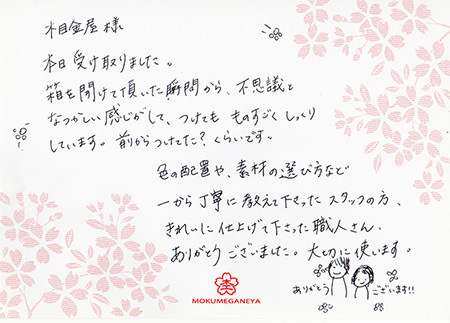 杢目金屋 様
本日 受け取りました。
箱を開けて頂いた瞬間から、不思議と
なつかしい感じがして、つけても ものすごく しっくり
しています。前からつけてた？くらいです。
色の配置や、素材の選び方など
一から丁寧に教えて下さった スタッフの方、
きれいに仕上げて下さった職人さん、
ありがとうございました。大切に使います。
ありがとう ございます!!
MOKUMEGANEYA